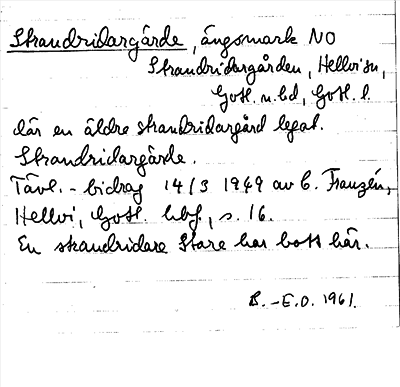 Strandridargärde, ängsmark NO
Strandridargården, Hellvi sn,
Gotl. n. hd, Gotl. l.
där en äldre strandridargård legat.
Strandridargärde.
Tävl.-bidrag 14/3 1949 av C. Franzén,
Hellvi, Gotl. hbf., s. 16.
En strandridare Stare har bott här.
B.-E.O. 1961.